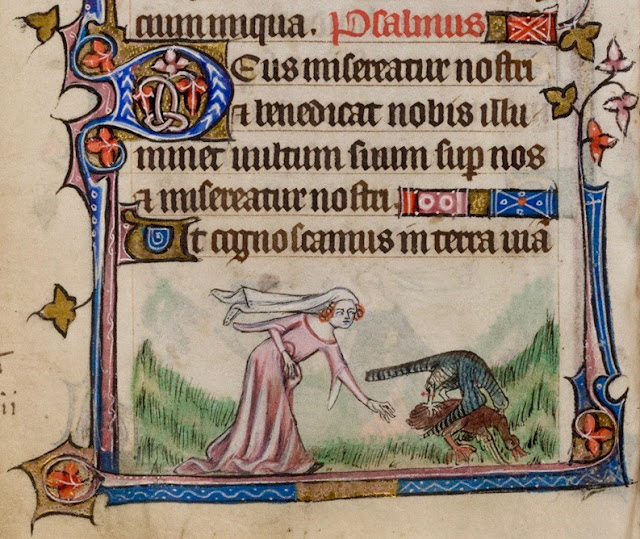 cium iniqua. Psalmus
Deus misereatur nostri
& benedicat nobis illu
minet uultum suum sup nos
& misereatur nostri
Ut cognoscamus in terra uiā
ii